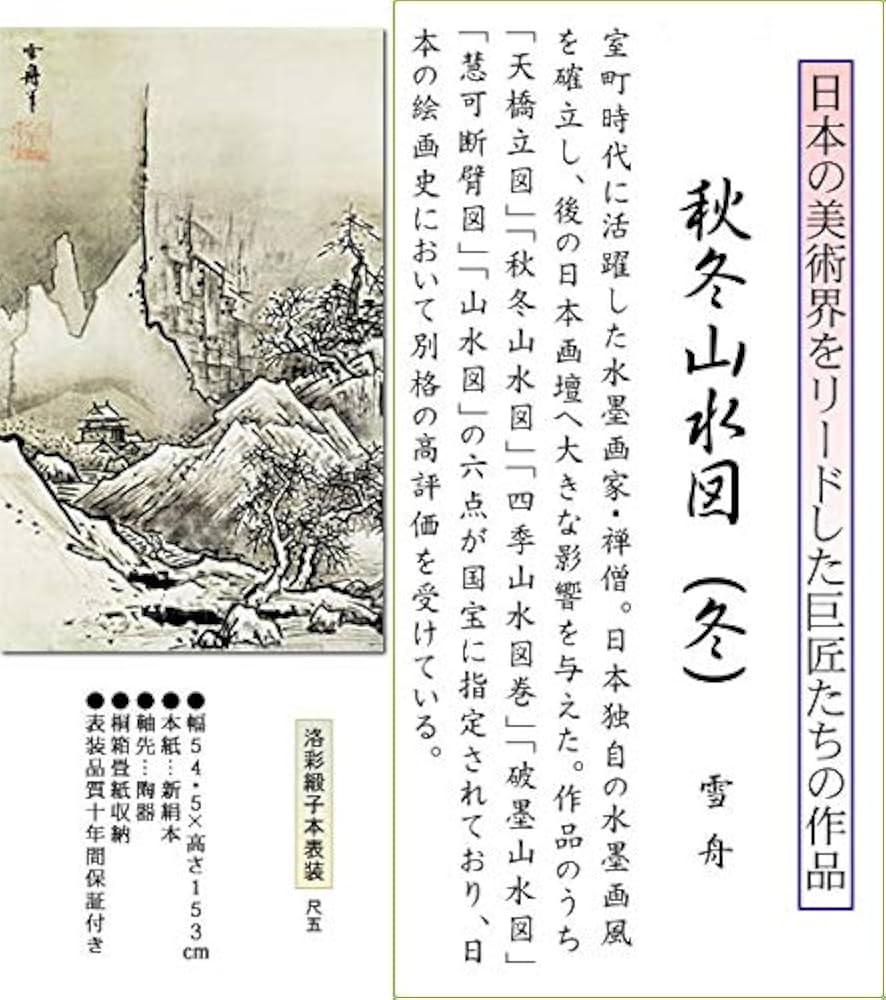 日本の美術界をリードした巨匠たちの作品
秋冬山水図（冬）
雪舟
室町時代に活躍した水墨画家・禅僧。日本独自の水墨画風
を確立し、後の日本画壇へ大きな影響を与えた。作品のうち
「天橋立図」「秋冬山水図」「四季山水図巻」「破墨山水図」
「慧可断臂図」「山水図」の六点が国宝に指定されており、日
本の絵画史において別格の高評価を受けている。
雪舟筆
洛彩緞子本表装
尺五
●幅54・5×高さ153cm
●本紙…新絹本
●軸先…陶器
●桐箱畳紙収納
●表装品質十年間保証付き